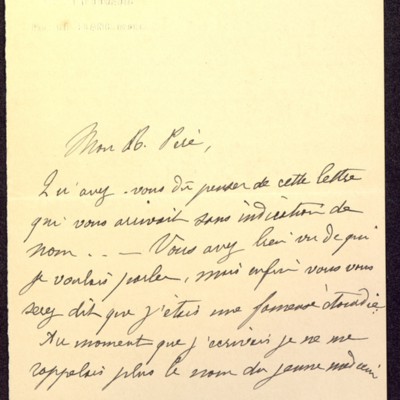 Mon R. Père,
Qu'avez-vous dû penser de cette lettre
qui vous arrivait sans indication de
nom . . — Vous avez bien vu de qui
je voulais parler, mais enfin vous vous
serez dit que j'étais une fameuse étourdie.
Au moment que j'écrivais je ne me
rappelais plus le nom du jeune médecin